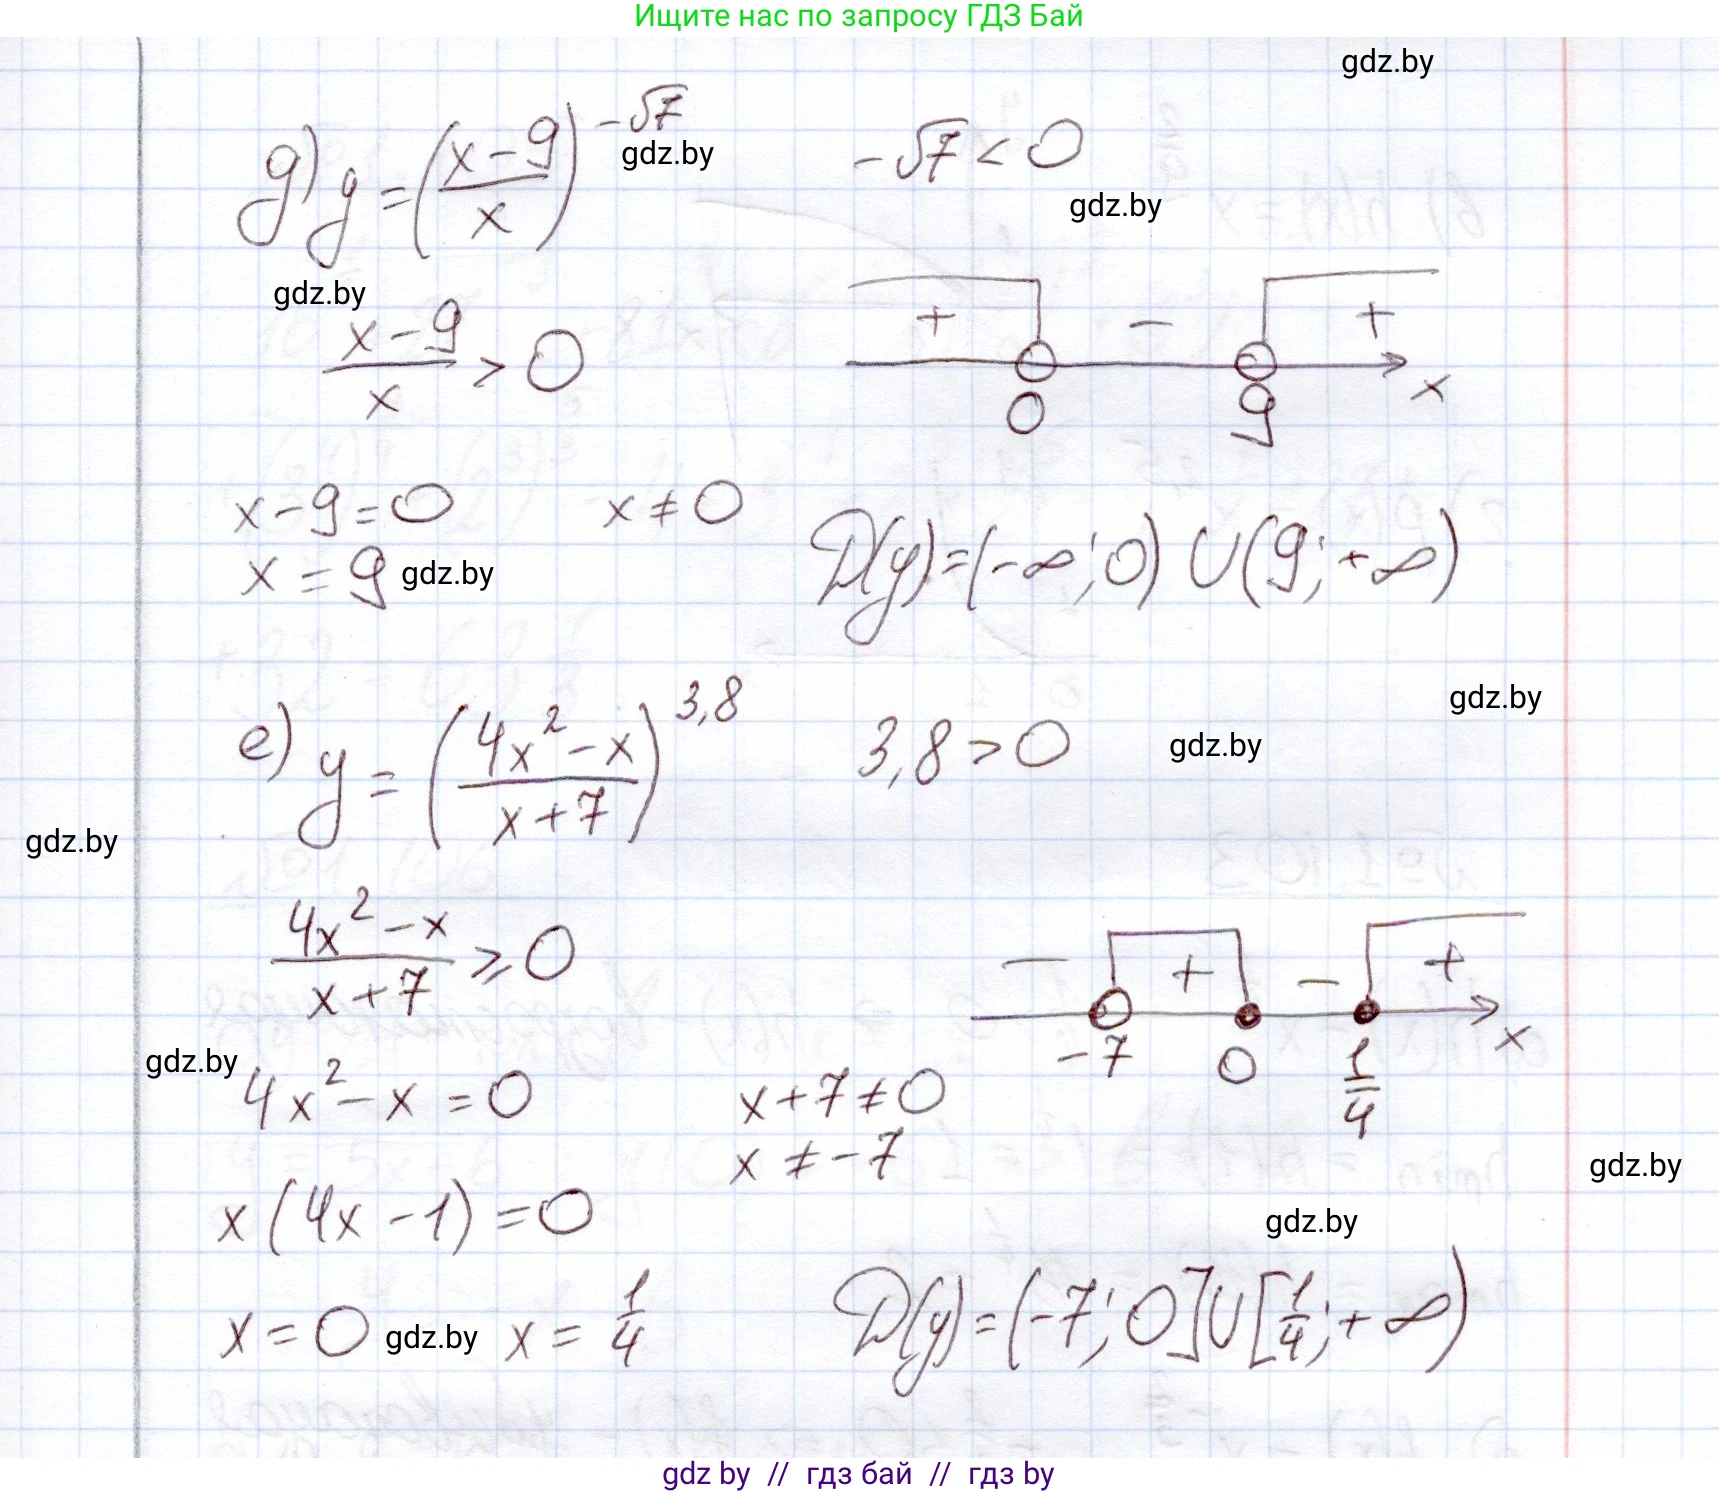 Ищите нас по запросу ГДЗ Бай
gdz.by
д) y = ((x-9)/x)^(-√7) gdz.by
-√7 < 0
gdz.by
gdz.by
(x-9)/x > 0
+ - +
0 9 x
x-9=0 x≠0
x=9 gdz.by
D(y)=(-∞;0) ∪ (9;+∞)
gdz.by
е) y = ((4x²-x)/(x+7))^3,8
3,8>0 gdz.by
gdz.by
(4x²-x)/(x+7) ≥ 0
- + - +
-7 0 1/4 x
gdz.by
4x²-x=0 x+7≠0
x≠-7
gdz.by
x(4x-1)=0
gdz.by
x=0 gdz.by x=1/4
D(y)=(-7;0]∪[1/4;+∞)
gdz by // гдз бай // гдз by